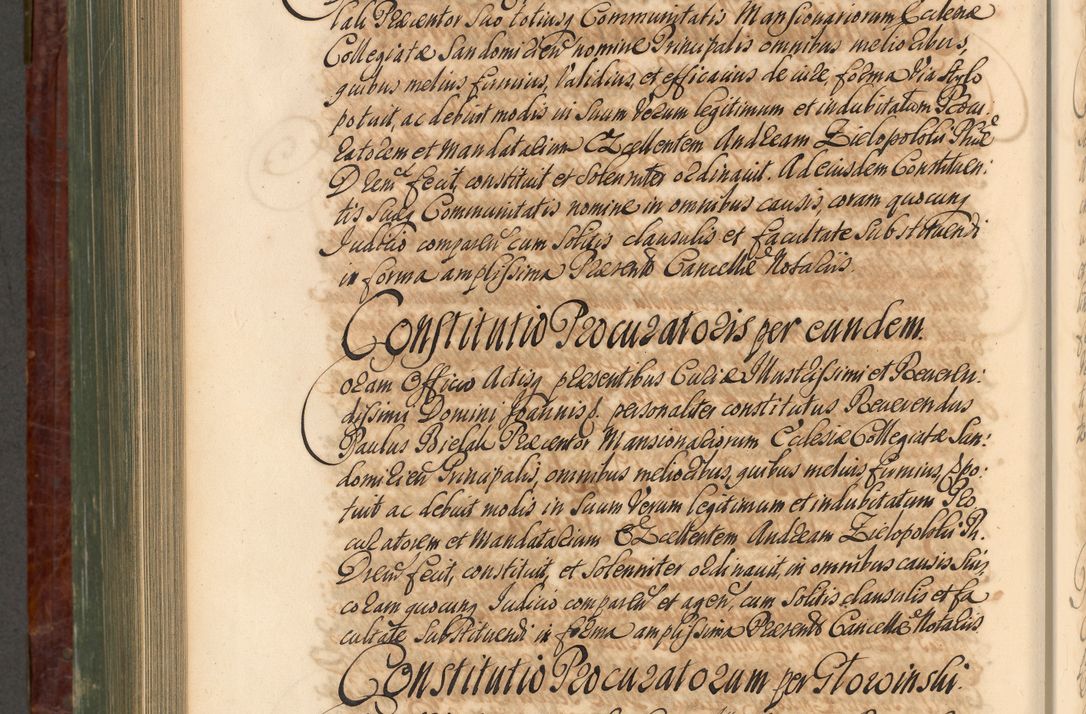 Præcentor suo totiusq Communitatis Mansionariorum Ecclesiæ
Collegiatæ Sandomirien nomine Principalis omnibus melioribus,
quibus melius firmius, validius, et efficacius de iure, forma via stylo
potuit, ac debuit modis in suum verum legitimum et indubitatum Procu:
ratorem et Mandatarium Excellentem Andream Zielopolski Phiæ
Drem fecit, constituit et solenniter ordinavit. Ad eiusdem Constituen:
tis suæq Communitatis nomine in omnibus causis, coram quocunq
Iuditio comparen cum solitis clausulis et facultate substituendi
in forma amplissima Præsentib Cancellæ Notariis.
Constitutio Procuratoris per eundem.
Coram Officio Actisq præsentibus Curiæ Illustrissimi et Reveren:
dissimi Domini Joannis f. personaliter constitutus Reverendus
Paulus Bielak Præcentor Mansionariorum Ecclesiæ Collegiatæ San:
domirien Principalis, omnibus melioribus, quibus melius firmius, ppo:
tuit ac debuit modis in suum verum legitimum et indubitatum Pro
curatorem et Mandatarium Excellentem Andream Zielopolski Ph.
Drem fecit, constituit, et solenniter ordinavit, in omnibus causis suis,
coram quocunq Iudicio comparen et agen, cum solitis clausulis et fa
cultate substituendi in forma amplissima Præsentib Cancellæ Notariis
Constitutio Procuratorum per Głowinski.